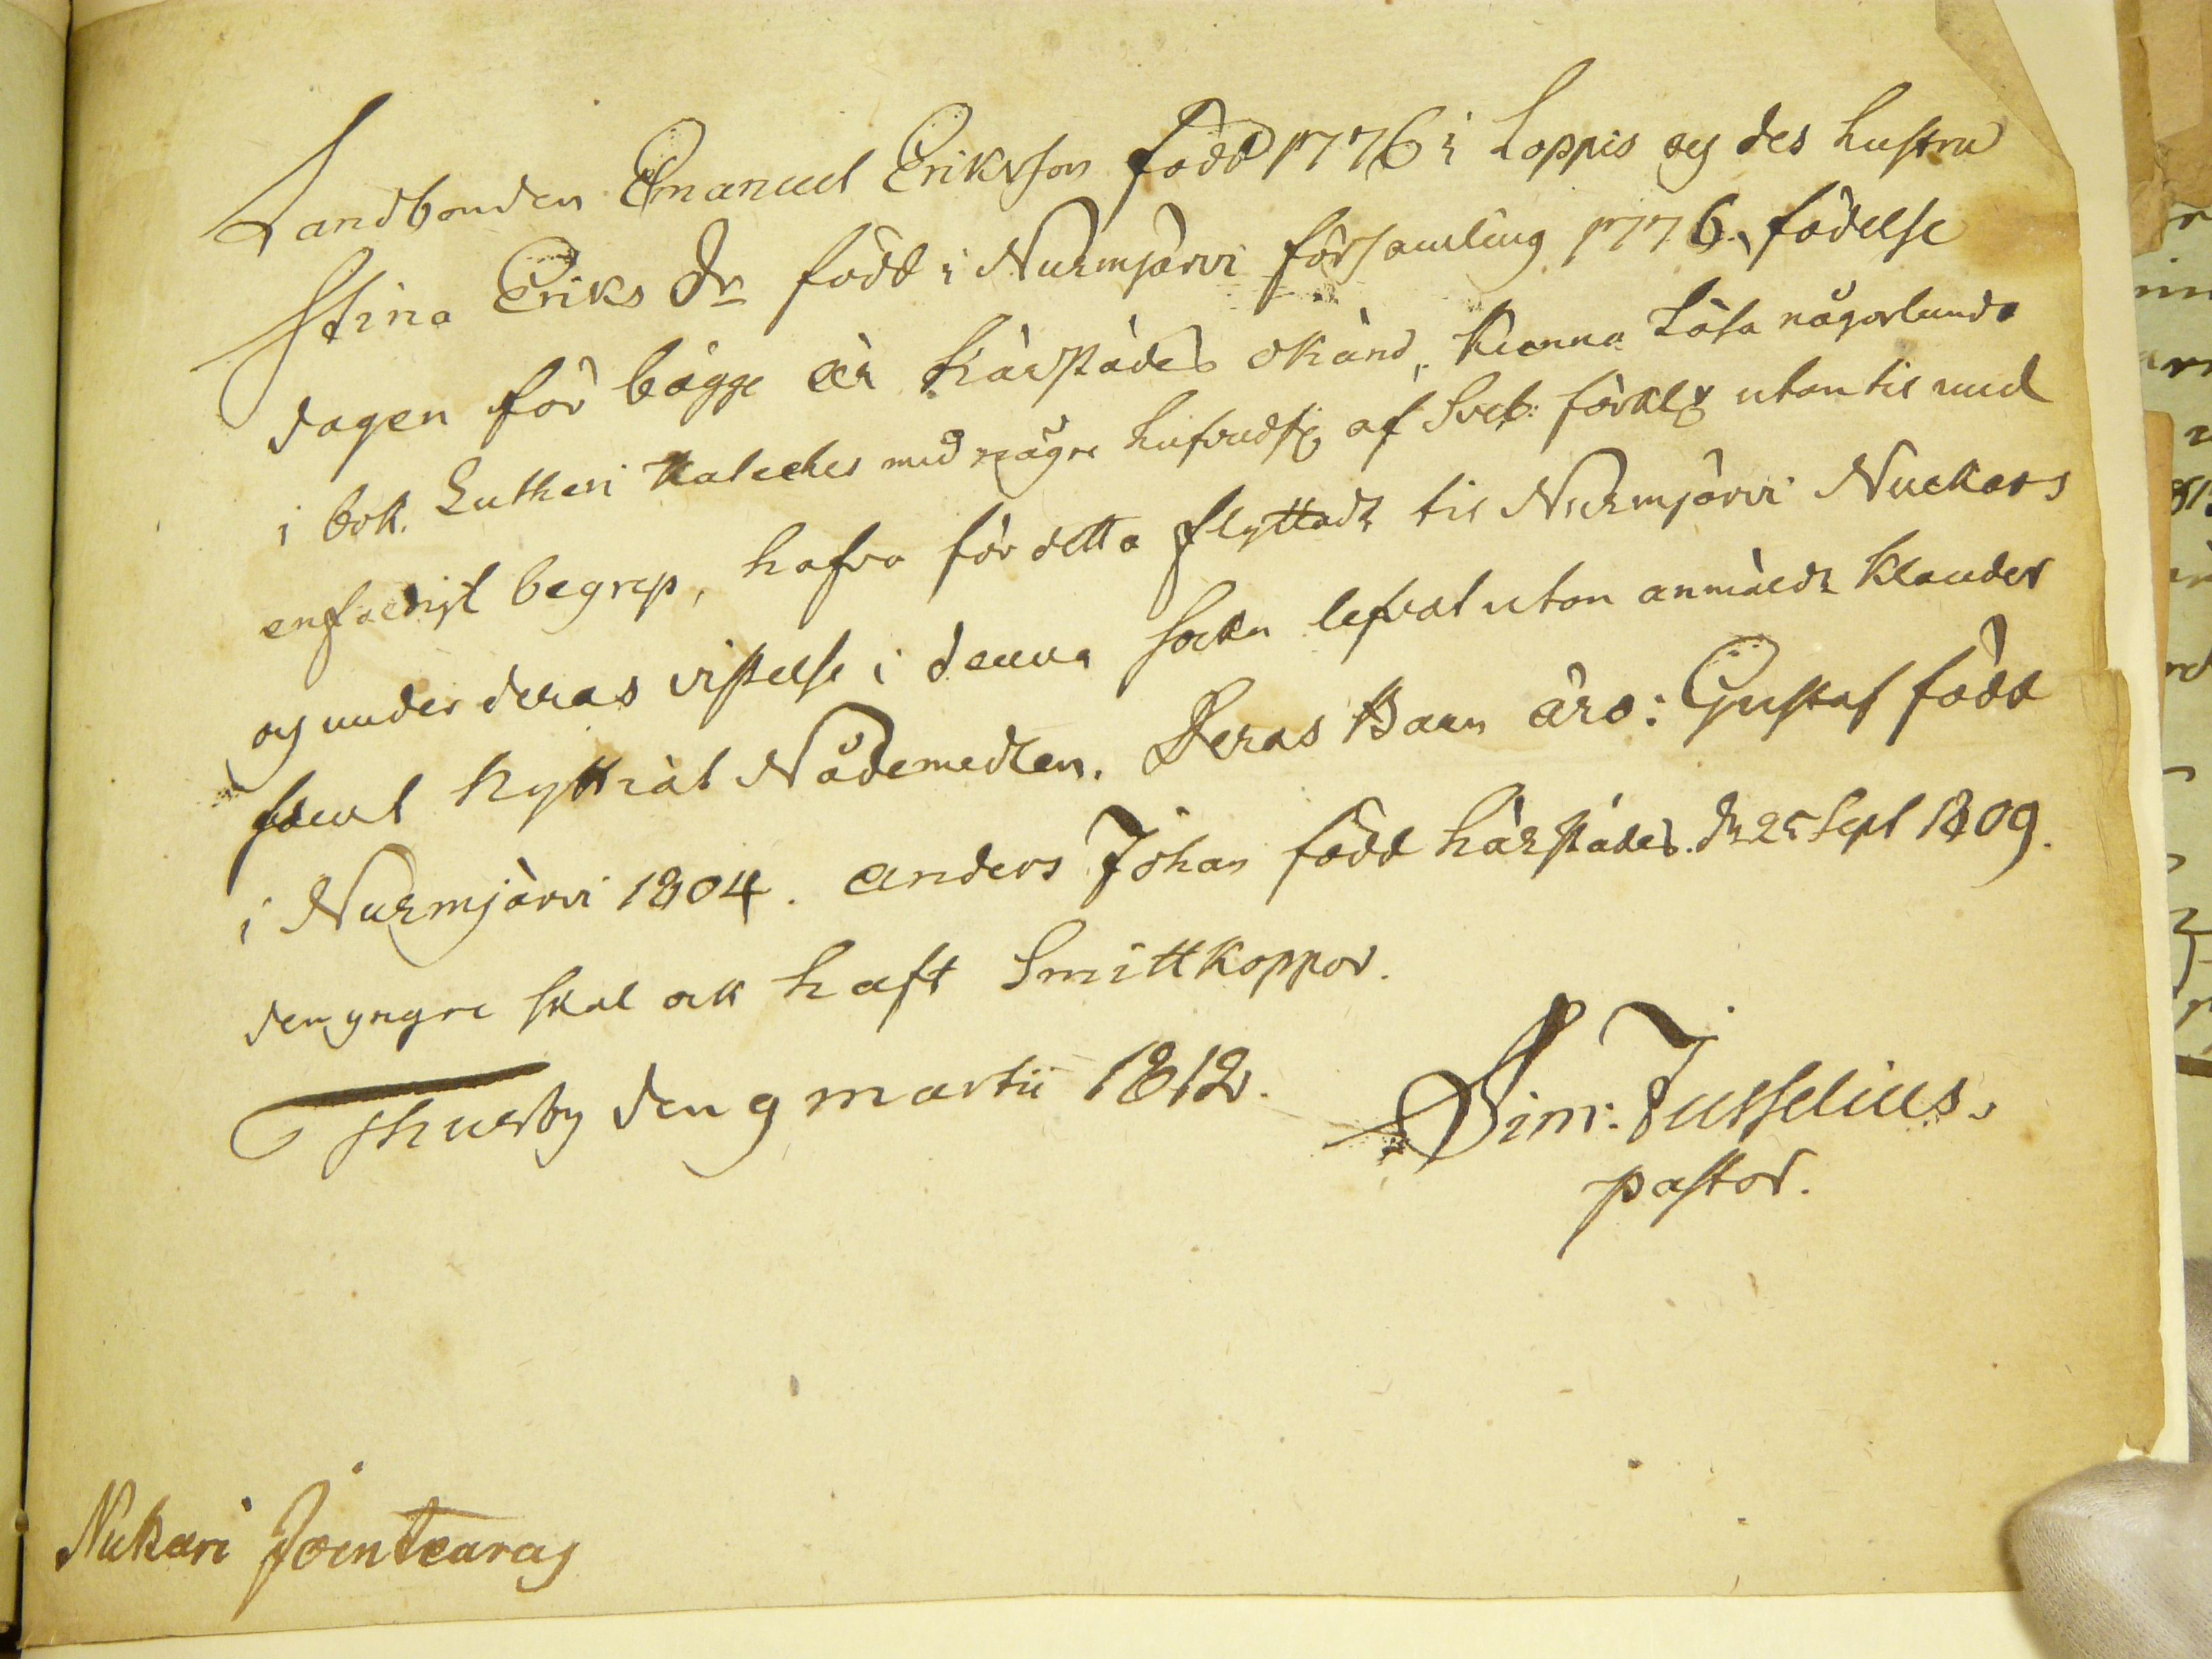 Landbonden Emanuel Eriksson född 1776 i Loppis og des hustru
Stina Eriks Dr född i Nurmjärvi församling 1776, födelse
dagen för bägge är härstädes okänd, kunna läsa någorlunda
i bok. Lutheri Kateches med några hufvudst af Sveb: förklg utantil med
enfaldigt begrep, hafva för detta flyttadt til Nurmjärvi Nuckars
og under deras vistelse i denna Sockn lefvat utan anmäldt klander
samt nyttiat Nådemedlen. Deras Barn äro: Gustaf född
i Nurmjärvi 1804. Anders Johan född härstädes. dn 25 Sept 1809.
den yngre skal ock haft Smittkoppor.
Thusby den 9 martii 1812.
Sim: Jusselius.
pastor.
Nukari